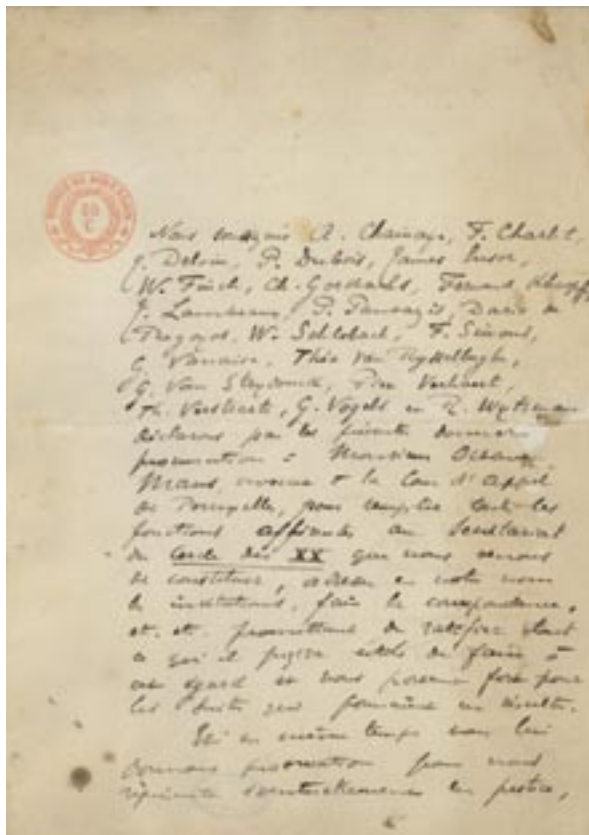 Nous soussignés A. Chainaye, F. Charlet,
J. Delvin, P. Dubois, James Ensor,
W. Finch, Ch. Goethals, Fernand Khnopff,
J. Lambeaux, P. Pantazis, Dario de
Regoyos, W. Schlobach, F. Simons,
G. Vanaise, Théo van Rysselberghe,
G. Van Strydonck, Piet Verhaert,
Th. Verstraete, G. Vogels et R. Wytsman
déclarons par les présentes donner
procuration à Monsieur Octave
Maus, avocat à la Cour d'appel
de Bruxelles, pour remplir tout les
fonctions afférentes au Secrétariat
du Cercle des XX que nous venons
de constituer, en notre nom
faire la correspondance,
et. et. promettant de ratifier tout
ce qu'il jugera utile de faire à
cet égard et nous portant fort pour
les suites qui pourraient en résulter.
Et en même temps nous lui
donnons procuration pour nous
représenter éventuellement en justice,